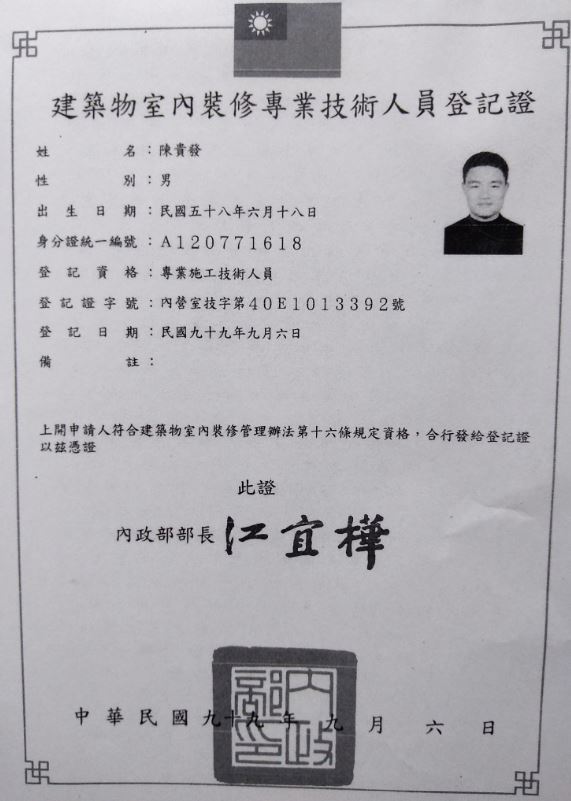 建築物室內裝修專業技術人員登記證
姓名：陳貴發
性別：男
出生日期：民國五十八年六月十八日
身分證統一編號：A120771618
登記資格：專業施工技術人員
登記證字號：內營室技字第40E1013392號
登記日期：民國九十九年九月六日
備註：
上開申請人符合建築物室內裝修管理辦法第十六條規定資格，合行發給登記證
以茲憑證
此證
內政部部長 江宜樺
內政部印
中華民國九十九年九月六日